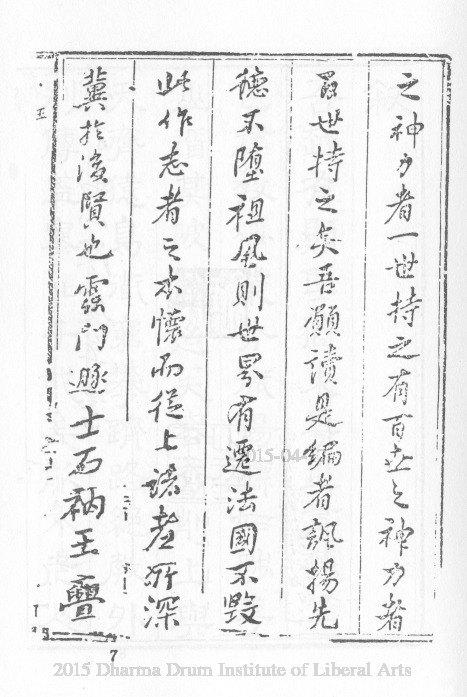 之神力者一世持之有百世之神力者
百世持之矣吾願讀是編者諷揚先
德不墮祖風則世界有遷法國不毀
此作志者之本懷而從上諸老所深
冀於後賢也靈門遯士而衲王亹
7
2015-04
2015 Dharma Drum Institute of Liberal Arts